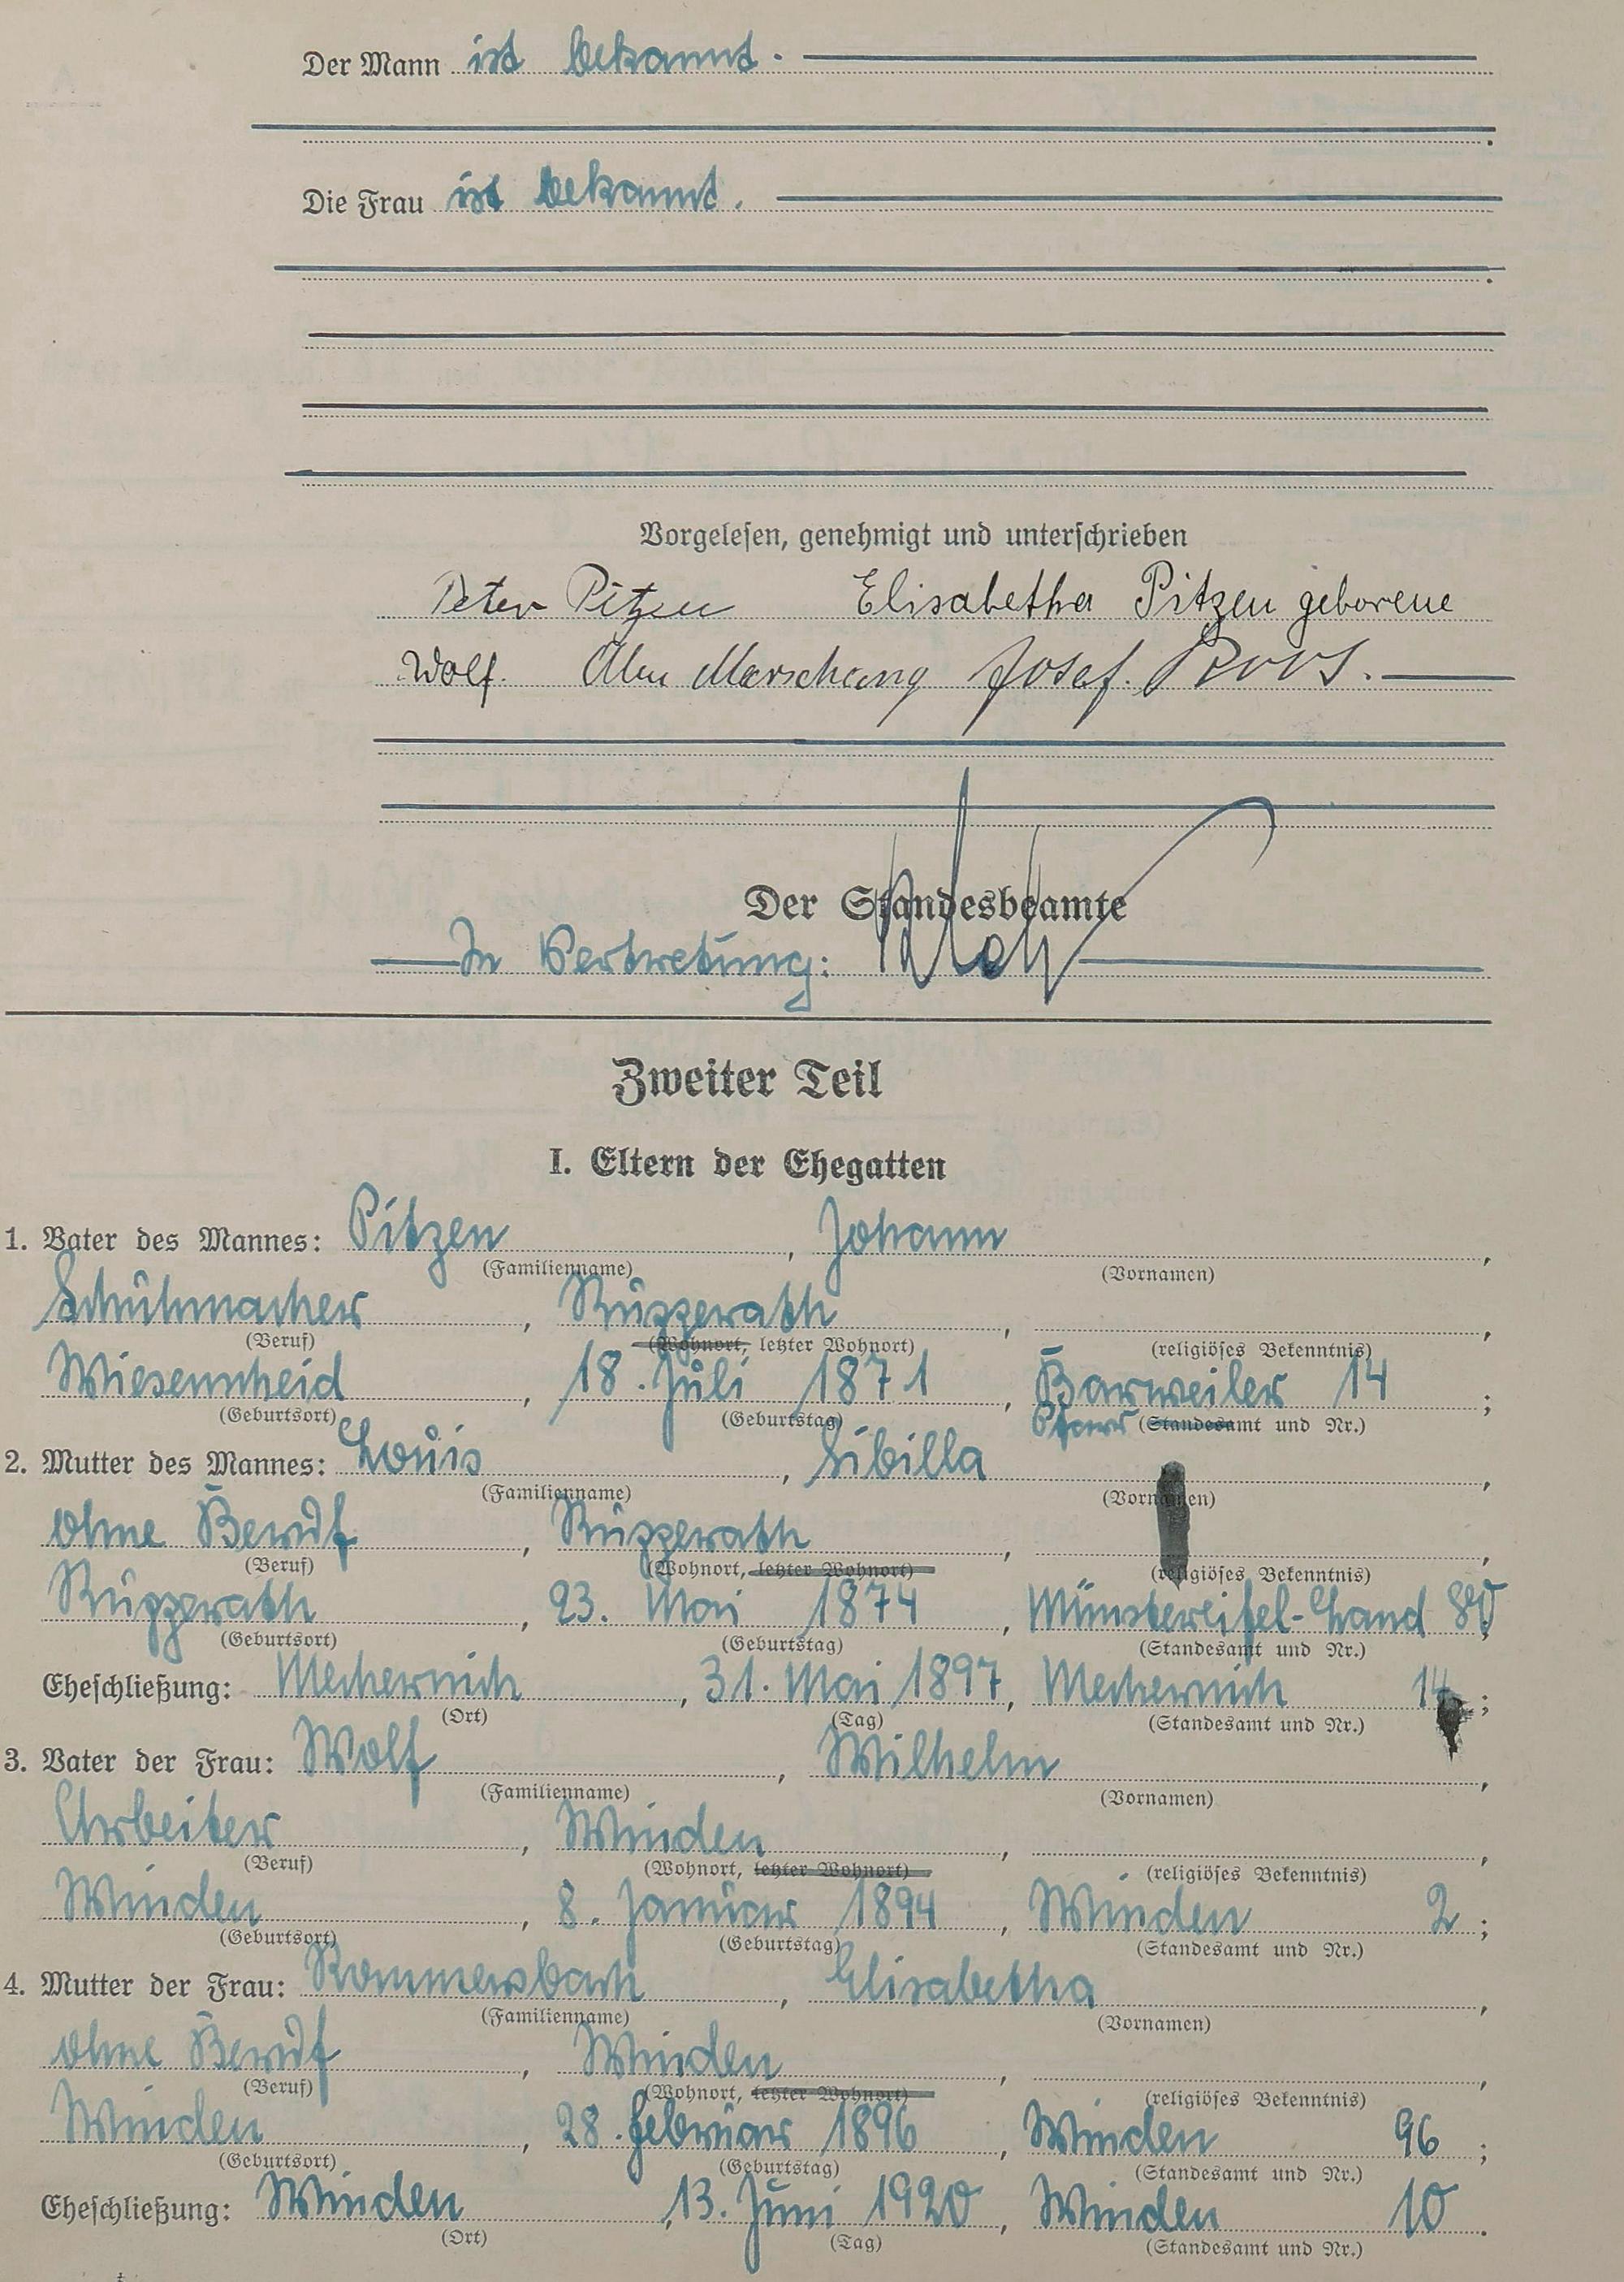 Der Mann ist bekannt.
Die Frau ist bekannt.
Vorgelesen, genehmigt und unterschrieben
Peter Pitzen Elisabetha Pitzen geborene
Wolf. Josef Roos.
Der Standesbeamte
In Vertretung:
Zweiter Teil
I. Eltern der Ehegatten
1. Vater des Mannes: Pitzen, Johann,
(Familienname) (Vornamen)
Schuhmacher, Rupperath, ,
(Beruf) (Wohnort, letzter Wohnort) (religiöses Bekenntnis)
Wiesenscheid, 18. Juli 1871, Barweiler 14;
(Geburtsort) (Geburtstag) Pfarr (Standesamt und Nr.)
2. Mutter des Mannes: Louis, Sibilla,
(Familienname) (Vornamen)
ohne Beruf, Rupperath, ,
(Beruf) (Wohnort, letzter Wohnort) (religiöses Bekenntnis)
Rupperath, 23. Mai 1874, Münstereifel-Land 80;
(Geburtsort) (Geburtstag) (Standesamt und Nr.)
Eheschließung: Mechernich, 31. Mai 1897, Mechernich 14;
(Ort) (Tag) (Standesamt und Nr.)
3. Vater der Frau: Wolf, Wilhelm,
(Familienname) (Vornamen)
Arbeiter, Winden, ,
(Beruf) (Wohnort, letzter Wohnort) (religiöses Bekenntnis)
Winden, 8. Januar 1894, Winden 2;
(Geburtsort) (Geburtstag) (Standesamt und Nr.)
4. Mutter der Frau: Rommersbach, Elisabetha,
(Familienname) (Vornamen)
ohne Beruf, Winden, ,
(Beruf) (Wohnort, letzter Wohnort) (religiöses Bekenntnis)
Winden, 28. Februar 1896, Winden 96;
(Geburtsort) (Geburtstag) (Standesamt und Nr.)
Eheschließung: Winden, 13. Juni 1920, Winden 10.
(Ort) (Tag) (Standesamt und Nr.)